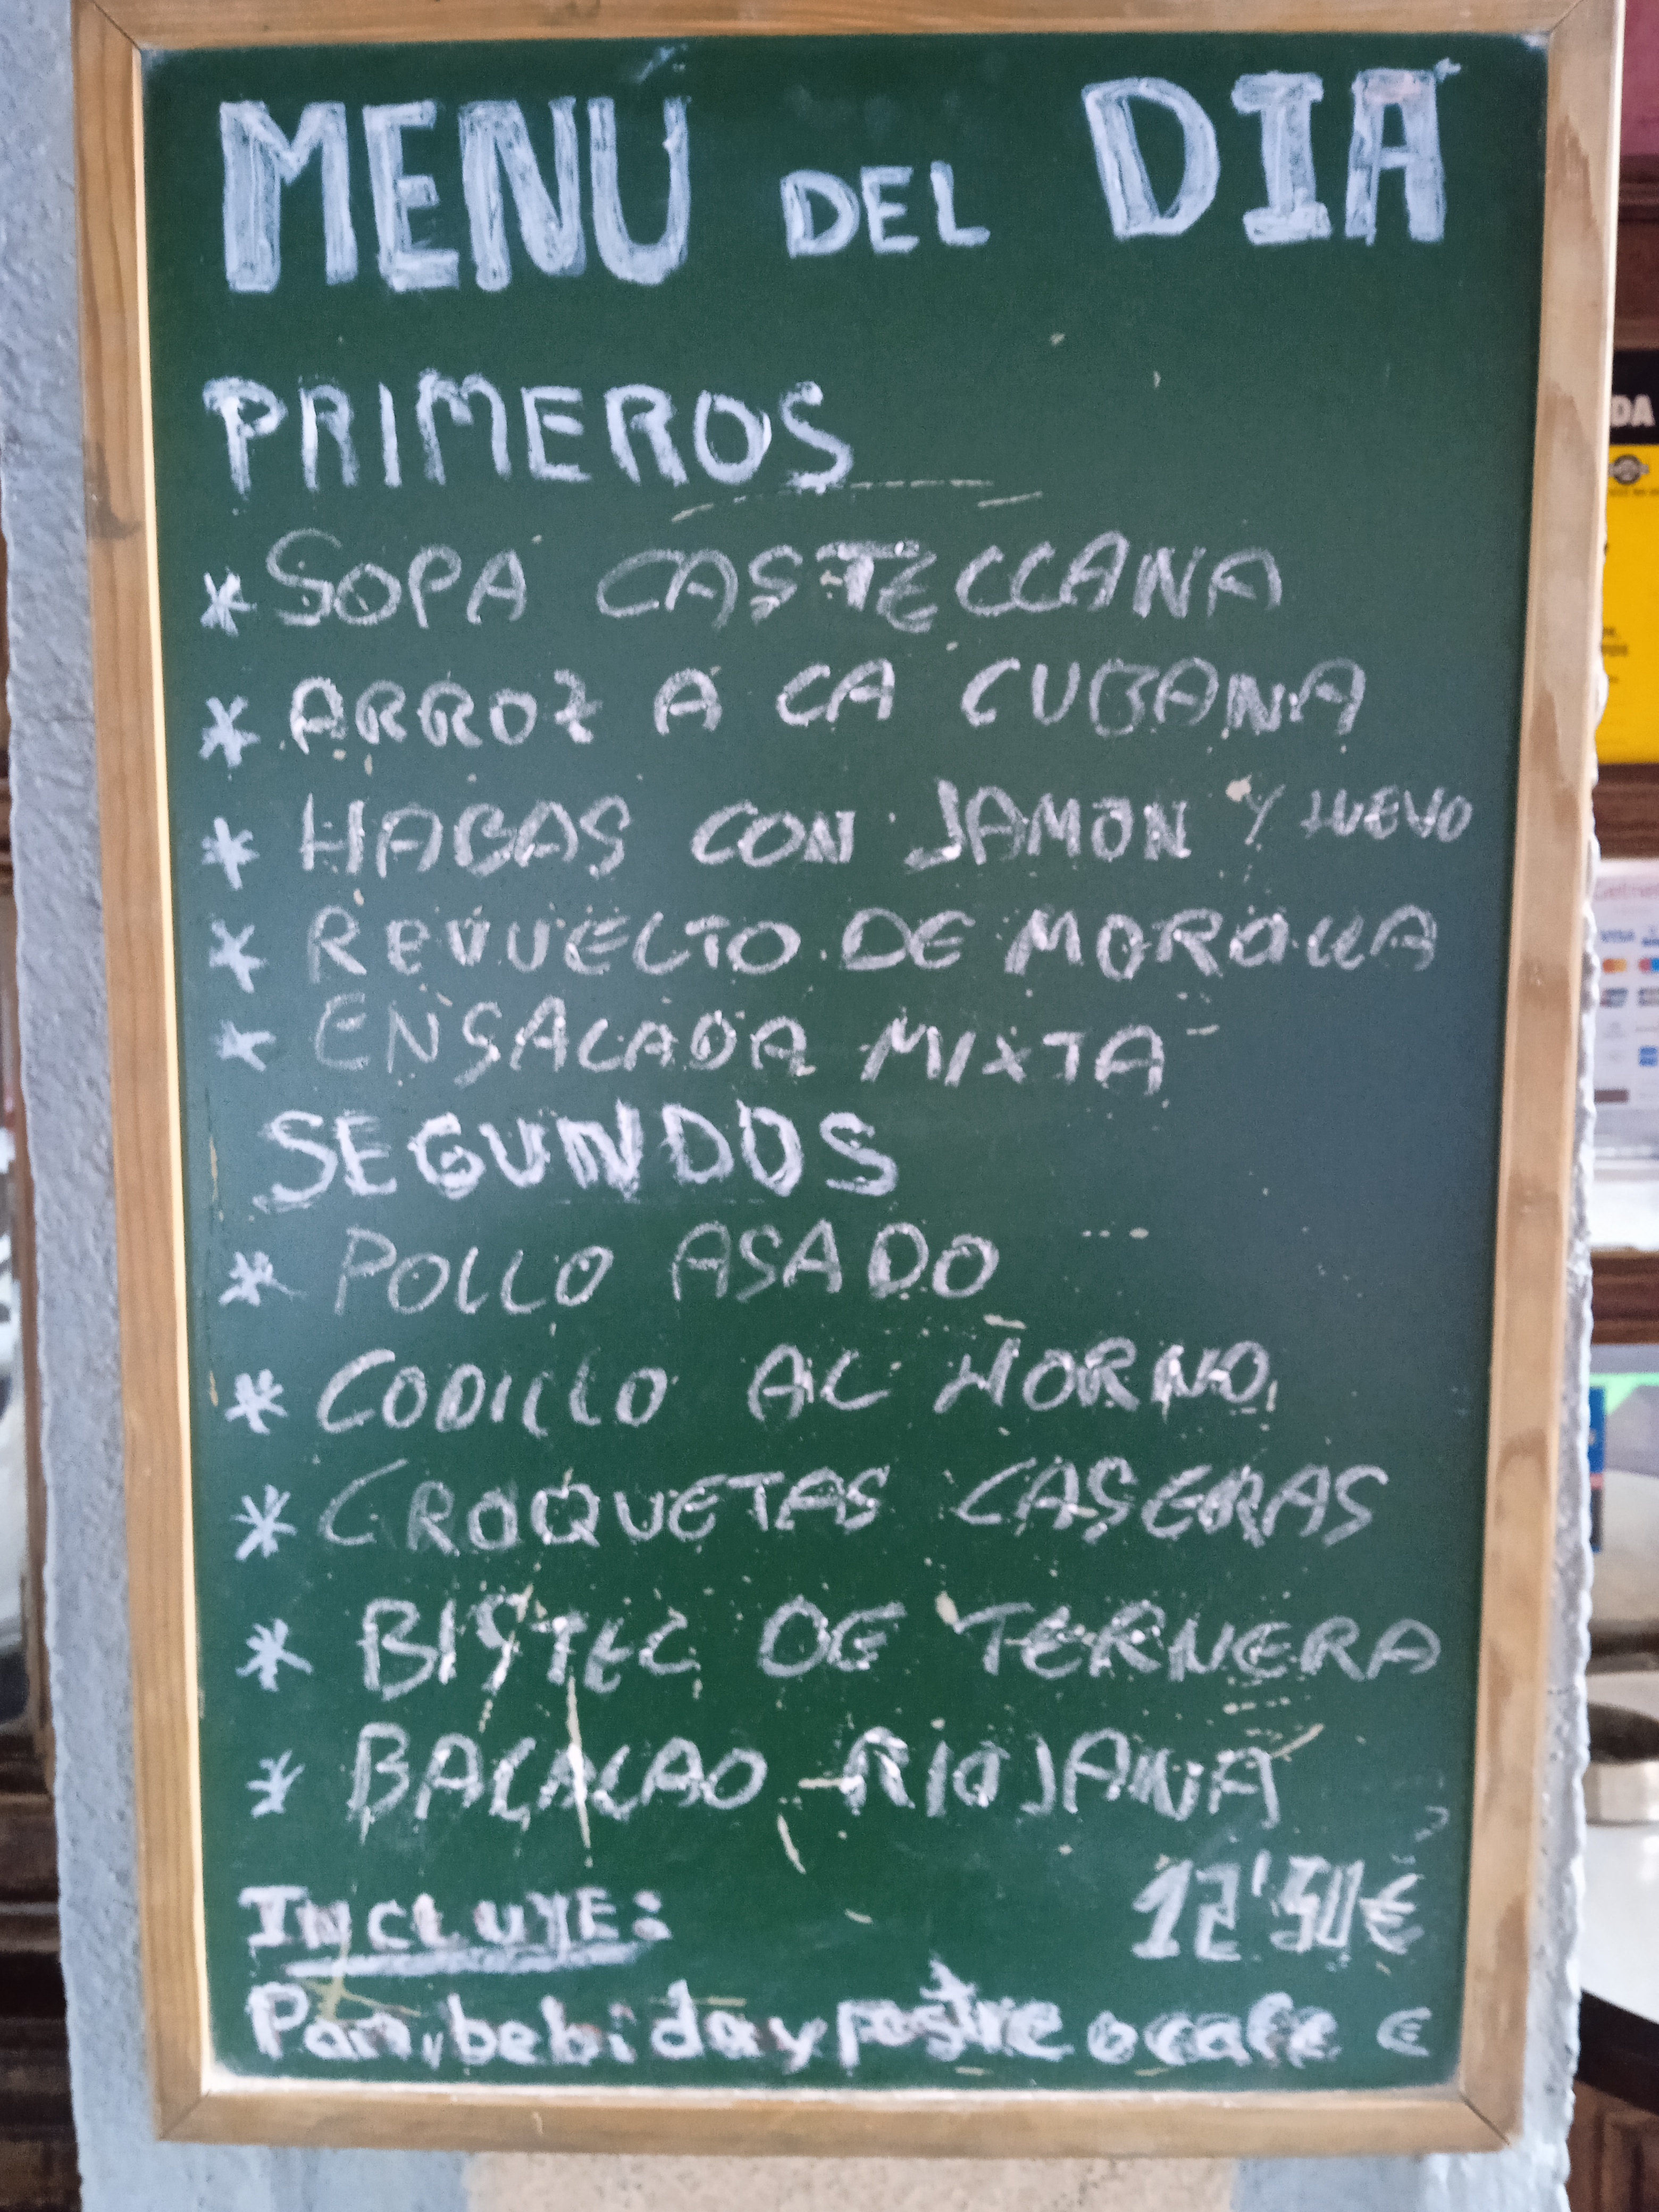 MENU DEL DIA
PRIMEROS
* SOPA CASTELLANA
* ARROZ A LA CUBANA
* HABAS CON JAMON Y HUEVO
* REVUELTO DE MORCILLA
* ENSALADA MIXTA
SEGUNDOS
* POLLO ASADO
* CODILLO AL HORNO
* CROQUETAS CASERAS
* BISTEC DE TERNERA
* BACALAO RIOJANA
INCLUYE: 12'50€
Pan, bebida y postre o cafe €
DA
VISA